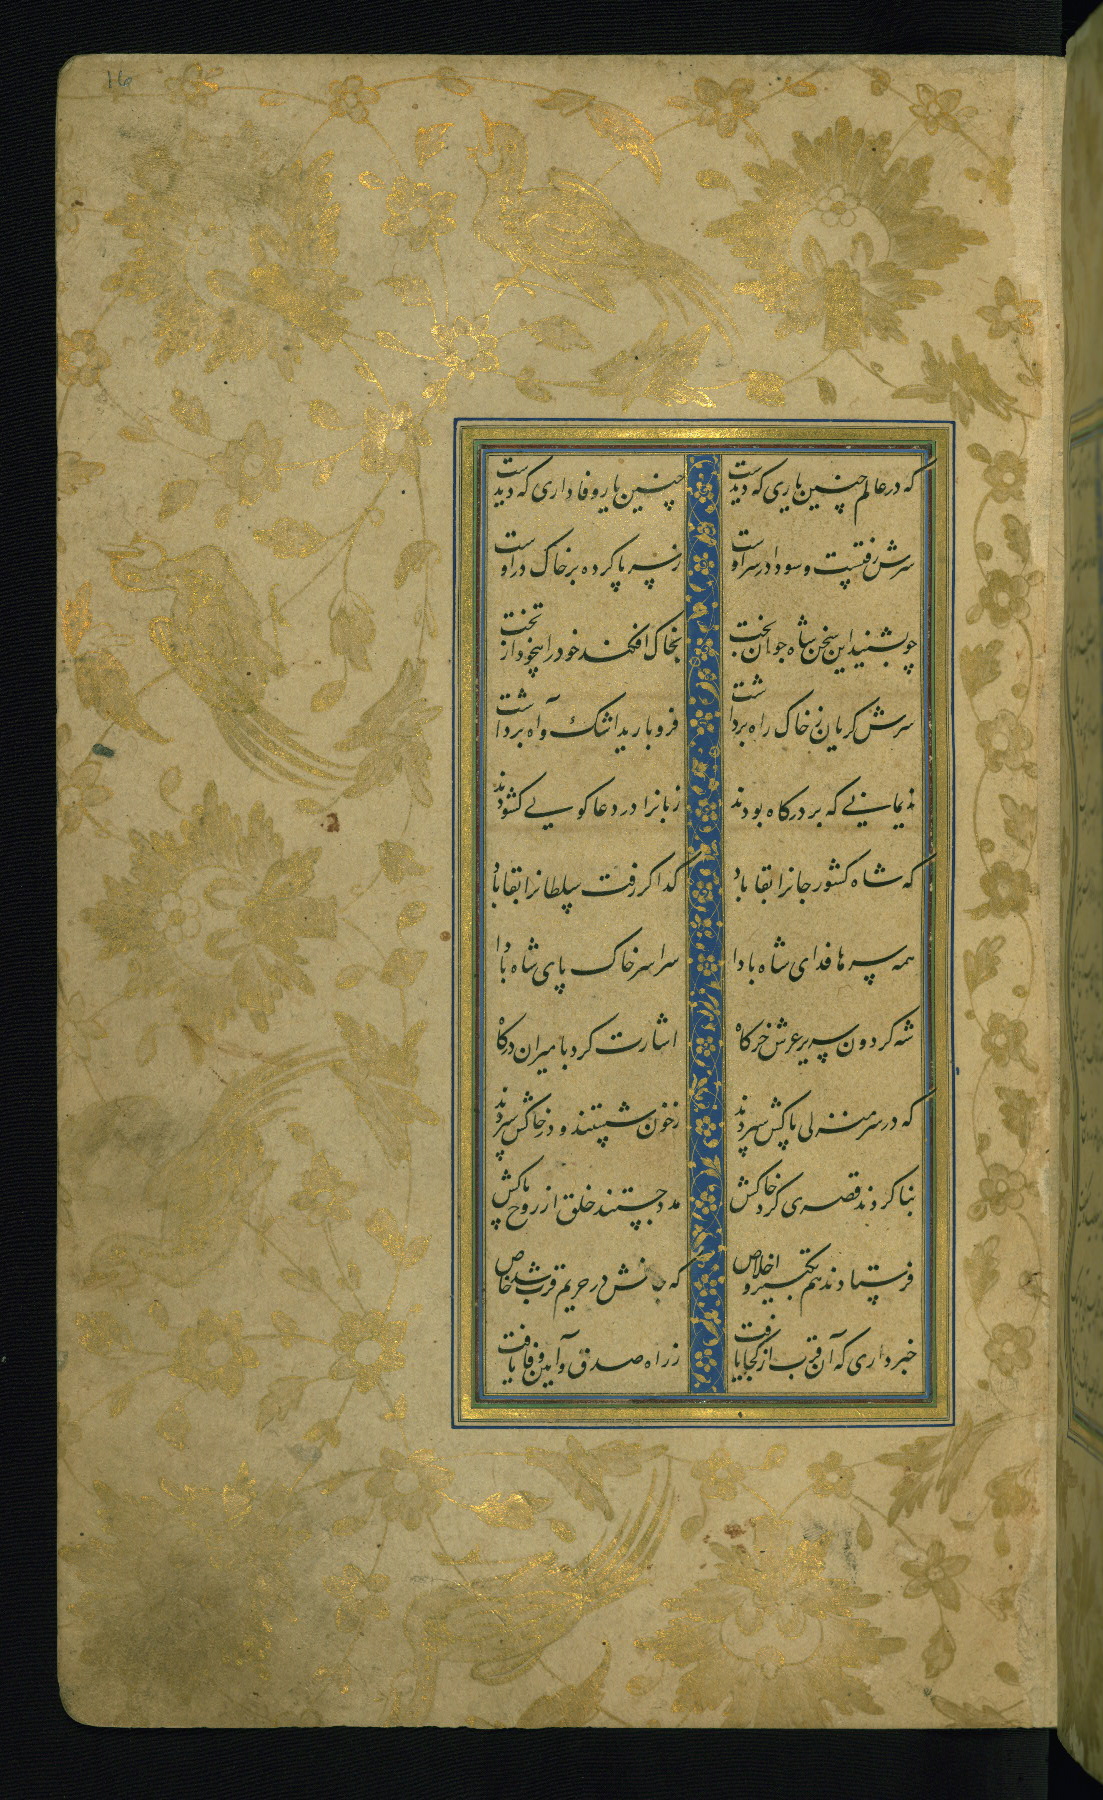 16
که در عالم چنین یاری که دیدست چنین یار وفاداری که دیدست
سرش رفتست و سودا در سر اوست ز سر پا کرده بر خاک در اوست
چو بشنید این سخن شاه جوان بخت بخاک افکند خود را بیخود از تخت
سرش کریان ز خاک راه برداشت فرو بارید اشک و آه برداشت
ندیمانی که بر درکاه بودند زبانرا در دعا کویی کشودند
که شاه کشور جانرا بقا باد کدا کر رفت سلطانرا بقا باد
همه سرها فدای شاه بادا سراسر خاک پای شاه بادا
شه کردون سریر عرش خرکاه اشارت کرد با میران درکاه
که در سرمنزلی پاکش سپردند ز خون شستند و در خاکش سپردند
بنا کردند قصری کرد خاکش مدد جستند خلق از روح پاکش
فرستادند هم تکبیر و اخلاص که جانش در حریم قرب شد خاص
خبر داری که آن قرب از کجا یافت ز راه صدق و آیین وفا یافت